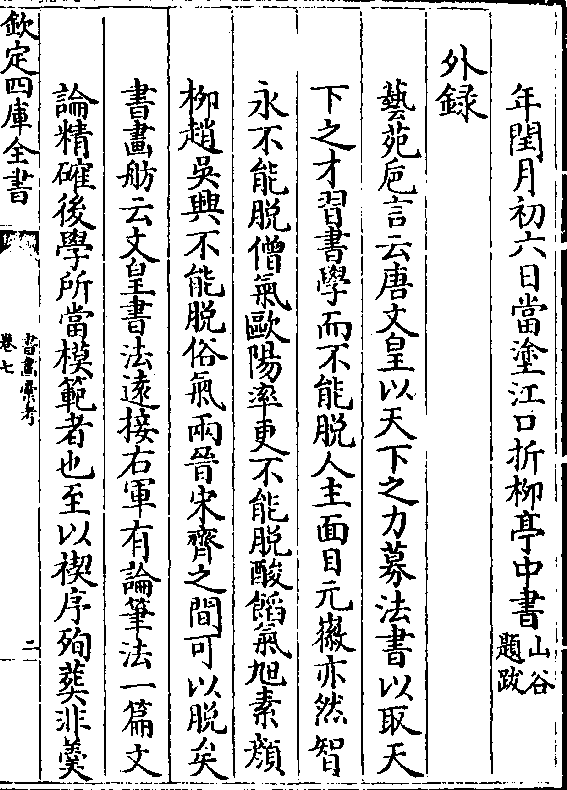 年閏月初六日當塗江口折柳亭中書山谷題跋
外録
藝苑巵言云唐文皇以天下之力募法書以取天
下之才習書學而不能脱人主面目元徽亦然智
永不能脱僧氣歐陽率更不能脱酸餡氣旭素顔
柳趙吳興不能脱俗氣兩晉宋齊之間可以脱矣
書畫舫云文皇書法遠接右軍有論筆法一篇文
論精確後學所當模範者也至以禊序殉葬非羮
欽定四庫全書
書畫彙考
卷七
二